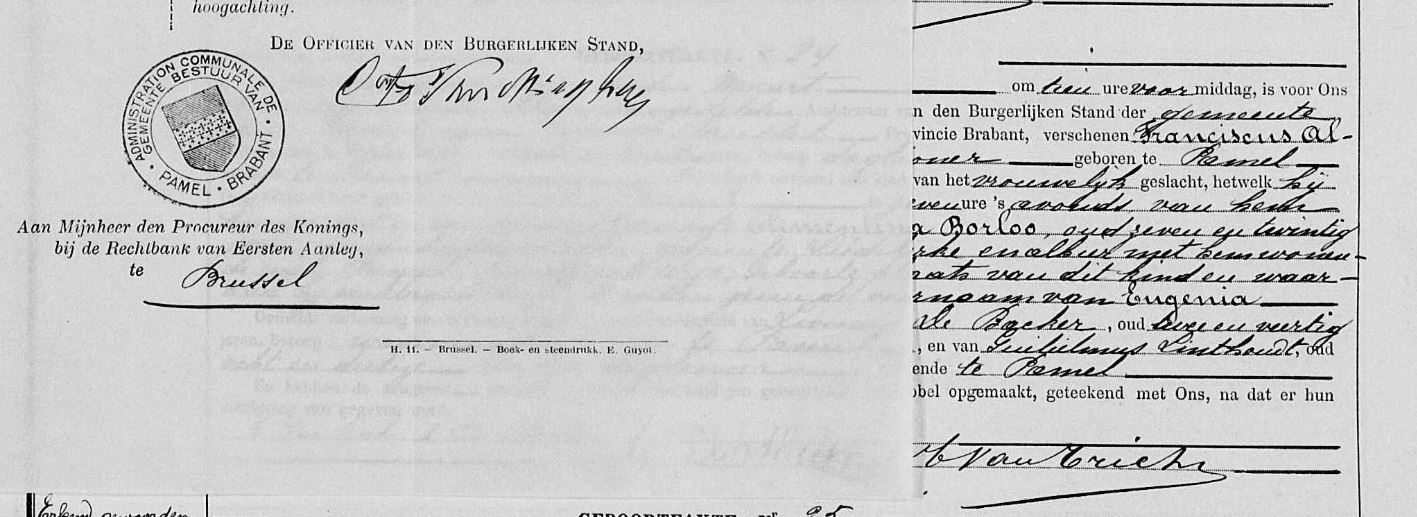 hoogachting.
DE OFFICIER VAN DEN BURGERLIJKEN STAND,
ADMINISTRATION COMMUNALE DE
GEMEENTE BESTUUR VAN
PAMEL · BRABANT
Aan Mijnheer den Procureur des Konings,
bij de Rechtbank van Eersten Aanleg,
te
Brussel
H. 11. — Brussel. — Boek- en steendrukk. E. Guyot.
om tien ure voor middag, is voor Ons
n den Burgerlijken Stand der gemeente
vincie Brabant, verschenen Franciscus Al-
geboren te Pamel
van het vrouwelijk geslacht, hetwelk hij
ure 's avonds van hem
a Borloo, oud zeven en twintig
en alhier met hem wonen-
aats van dit kind en waar-
rnaam van Eugenia
De Backer, oud twee en veertig
, en van Guilielmus Linthoudt, oud
ende te Pamel
bbel opgemaakt, geteekend met Ons, na dat er hun
GEBOORTEAKTE Nr 25